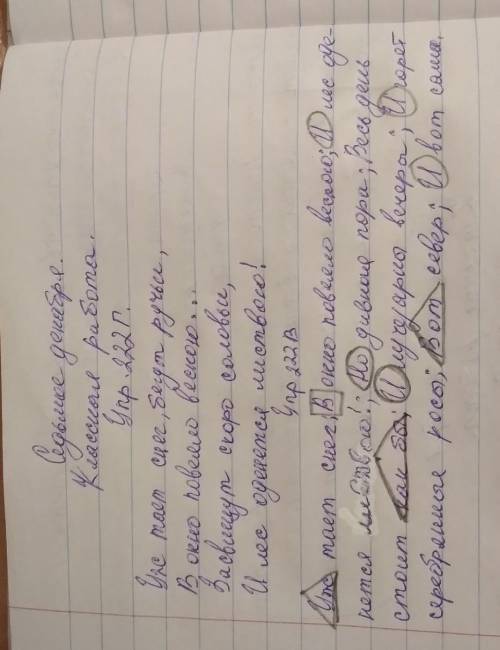 Седьмое декабря.
Классная работа.
Упр. 222 Г.
Уже тает снег, бегут ручьи,
В окно повеяло весною...
Засвищут скоро соловьи,
И лес оденется листвою!
Упр 222 В
Уже тает снег; В окно повеяло весною; И лес оде-
нется листвою!; Но дивная пора; Весь день
стоит как бы; И лучезарны вечера; И горят
серебряные росы; Вот север; И вот сама.